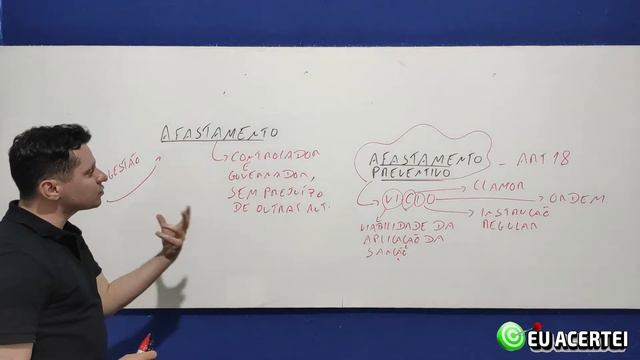 AFASTAMENTO
GESTÃO
CONTROLADOR
E
GOVERNADOR,
SEM PREJUÍZO
DE OUTRAS AUT.
AFASTAMENTO
PREVENTIVO
ART 18
VICIO
CLAMOR
ORDEM
INSTRUÇÃO
REGULAR
VIABILIDADE DA
APLICAÇÃO DA
SANÇÃO
EU ACERTEI